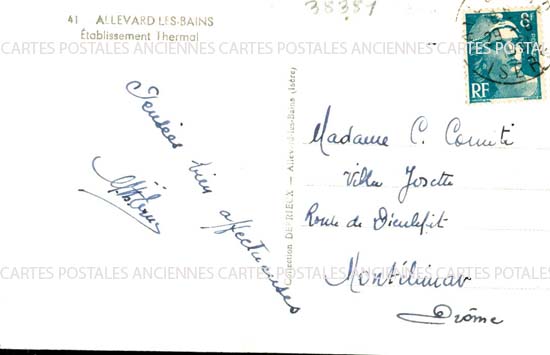 38387
41 ALLEVARD LES-BAINS
Établissement Thermal
8F
RF
CARTES POSTALES ANCIENNES CARTES POSTALES ANCIENNES CARTES POSTALES ANCIENNES CARTES POSTALES
Pensées bien affectueuses
Collection DEPRIEUX — Allevard-les-Bains (Isère)
Madame C. Comiti
Villa Josette
Route de Dieulefit
Montélimar
Drôme
CARTES POSTALES ANCIENNES CARTES POSTALES ANCIENNES CARTES POSTALES ANCIENNES CARTES POSTALES